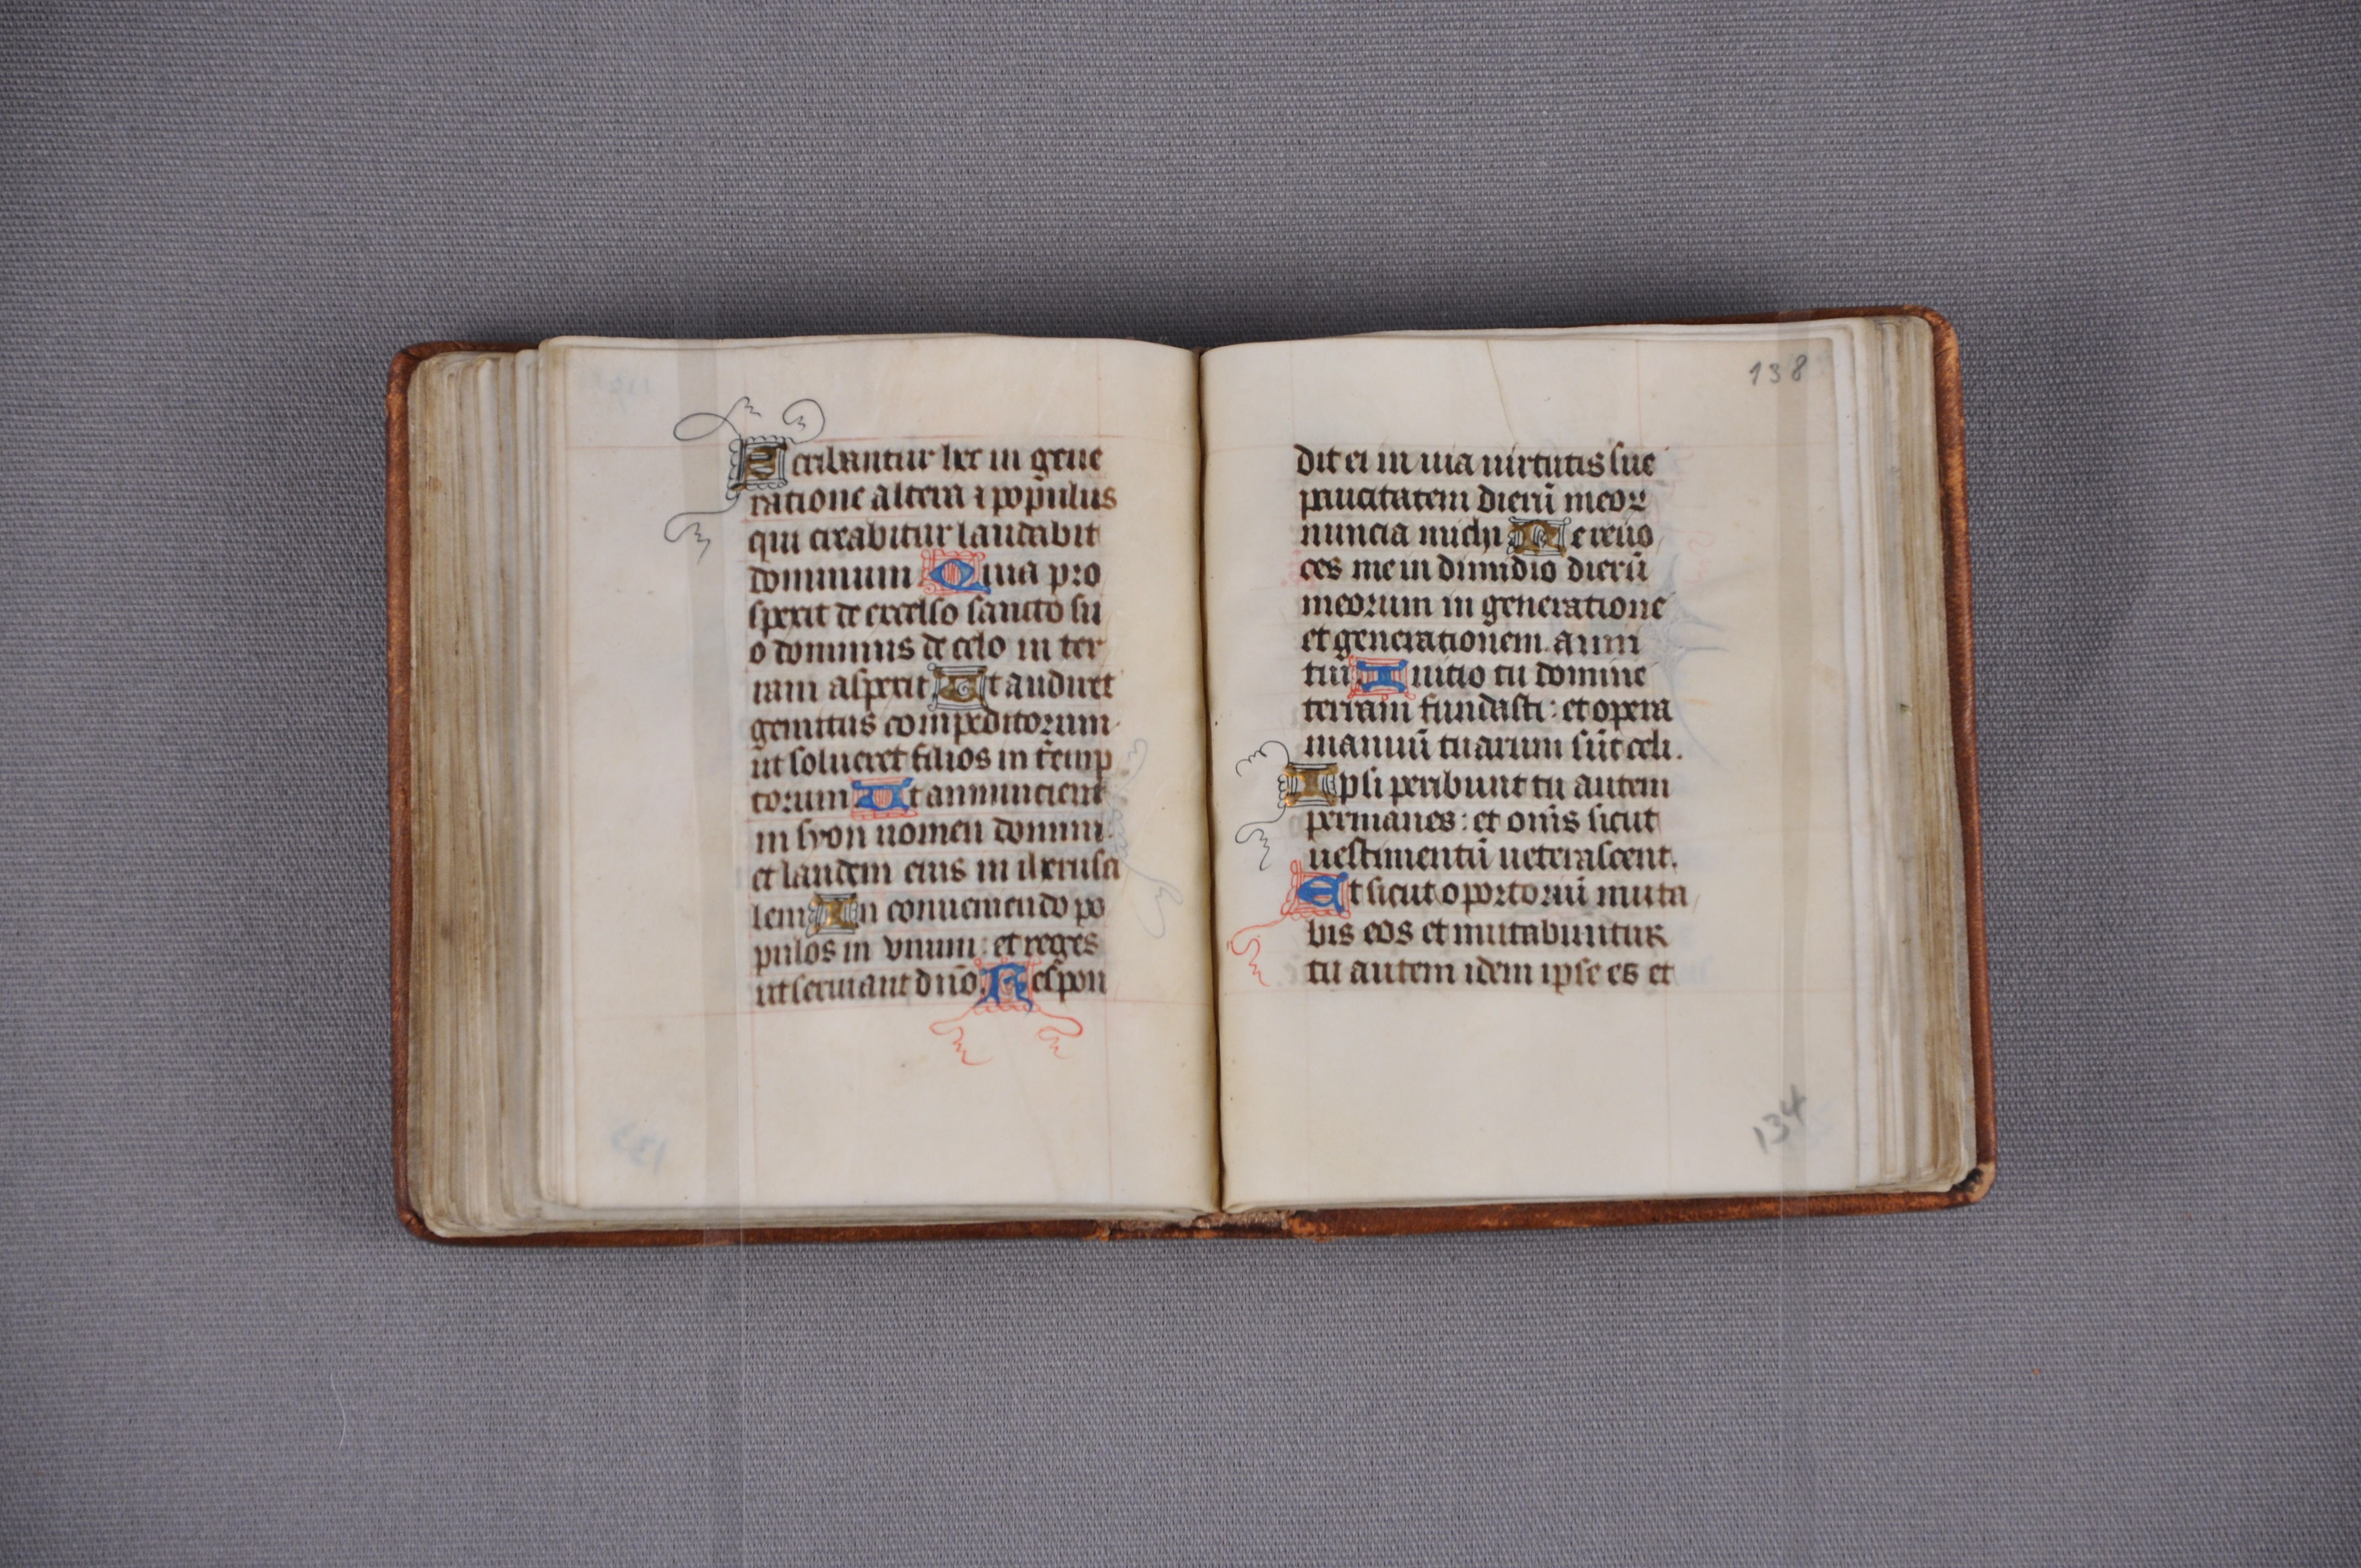 Scribantur hec in gene
ratione altera ⁊ populus
qui creabitur laudabit
dominum Quia pro
spexit de excelso sancto su
o dominus de celo in ter
ram aspexit Ut audiret
gemitus compeditorum
ut solueret filios in teremp
torum Ut annuncient
in syon nomen domini
et laudem eius in iherusa
lem In conueniendo po
pulos in vnum : et reges
ut seruiant dño Respon
138
dit ei in uia uirtutis sue
paucitatem dierũ meoꝝ
nuncia michi Ne reuo
ces me in dimidio dierũ
meorum in generatione
et generationem anni
tui Inicio tu domine
terram fundasti : et opera
manuũ tuarum sũt celi.
Ipsi peribunt tu autem
permanes : et oms̃ sicut
uestimentũ ueterascent.
Et sicut oportoriũ muta
bis eos et mutabuntur
tu autem idem ipse es et
134